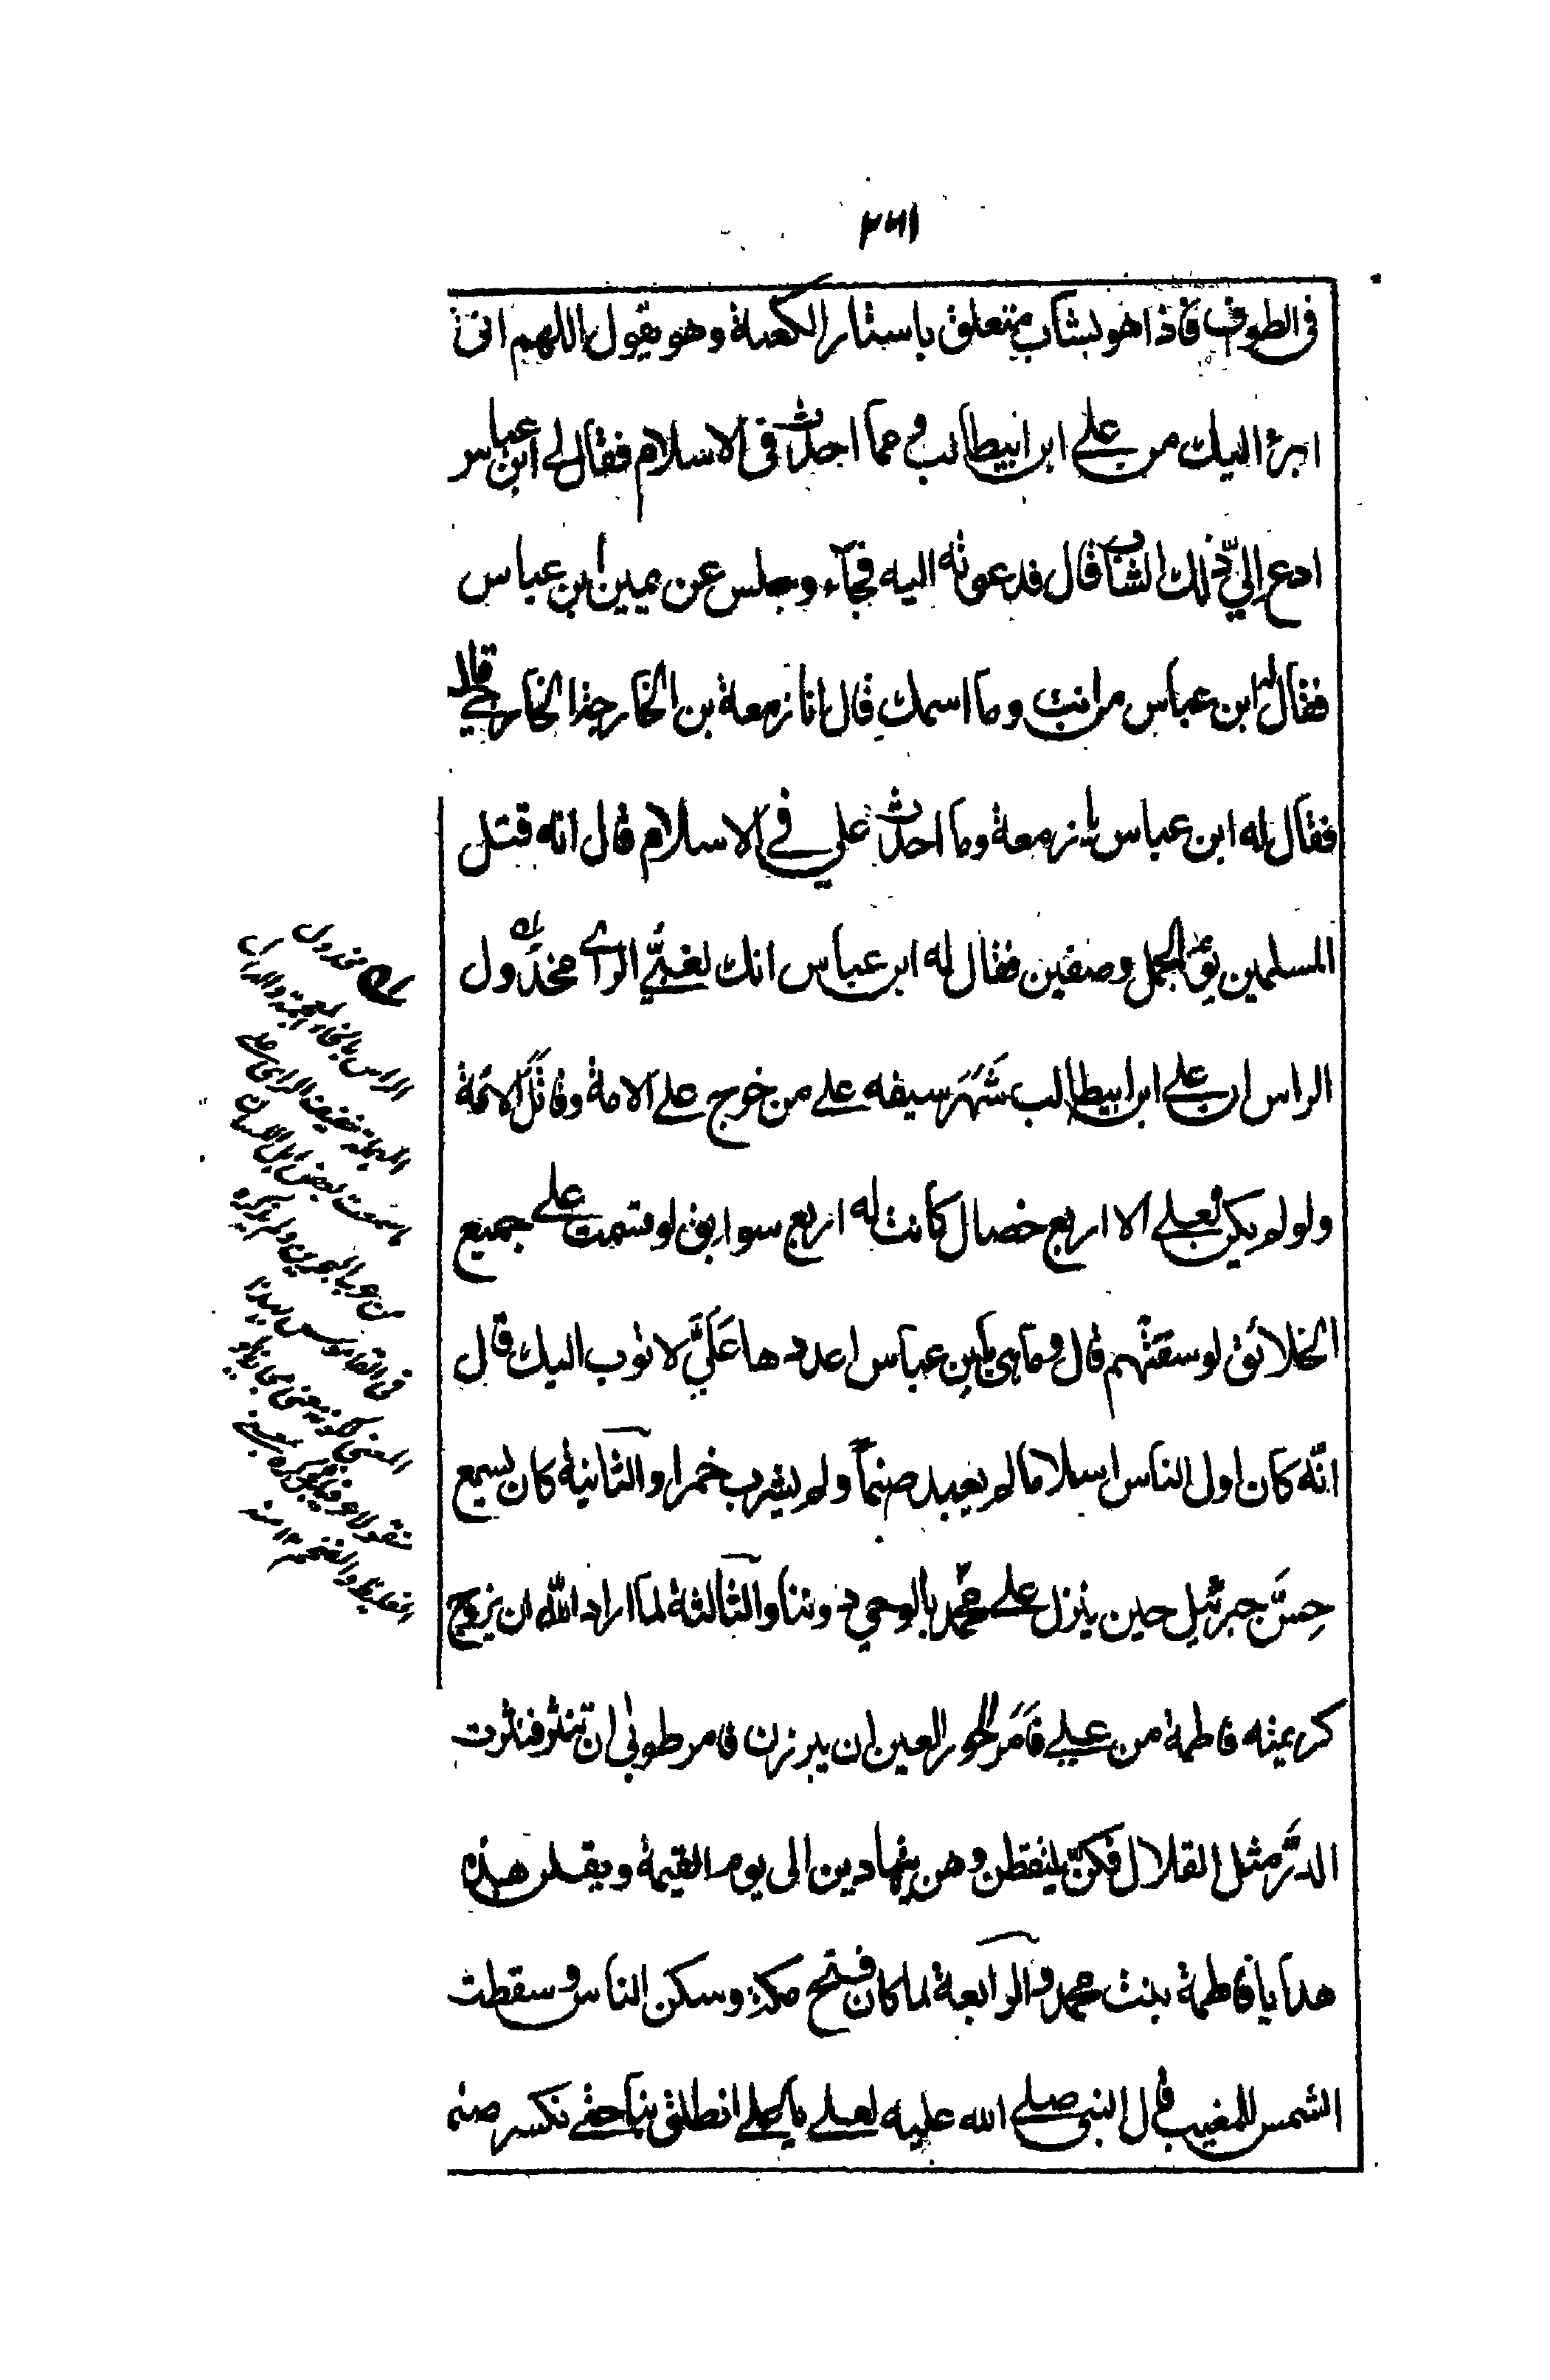 ٢٦١
فى الطوف فاذا هو بشاب متعلق باستار الكعبة وهو يقول اللهم انى
ابرئ اليك من على ابن ابيطالب و مما احدث فى الاسلام فقال لى ابن عباس
ادع الىّ ذلك الشاب قال فدعوته اليه فجاء وجلس عن يمين ابن عباس
فقال له ابن عباس من انت وما اسمك قال انا زمعة بن الخارجة الخارجى قال
فقال له ابن عباس يا زمعة وما احدث على فى الاسلام قال انه قتل
المسلمين يوم الجمل وصفين فقال له ابن عباس انك لغبىّ الراى مخدول
الراس ان على ابن ابيطالب شَهَرَ سيفه على من خرج على الامة وقاتل الائمة
ولو لم يكن لعلى الا اربع خصال كانت له اربع سوابق لو قسمت على جميع
الخلائق لوسقتهم قال وما هى يا بن عباس اعددها عَلَىَّ لاتوب اليك قال
انّه كان اول الناس اسلاما لم يعبد صنماً ولم يشرب خمرا والثانية كان يسمع
حِسَّ جبرئيل حين ينزل على محمد بالوحي دوننا والثالثة لما اراد الله ان يزوج
كريمته فاطمة من على فَاَمَرَ الحور العين ان يبرزن فامر طوبى ان تنثر فنثرت
الدُّرَّ مثل القلال فكنّ يلتقطن وهن يتهادين الى يوم القيمة ويقلن هذه
هدايا فاطمة بنت محمد والرابعة لما كان فتح مكة وسكن الناس وسقطت
الشمس للمغيب قال النبى صلى الله عليه لعلى يا على انطلق بنا حتى نكسر صنم
مخدول
الراس بالخاء المعجمة والدال
المهملة ضعيف الراى على
ما سمعت بعض اهل اللسان
من عرب البحرين ولم يذكره
فى القاموس بهذا